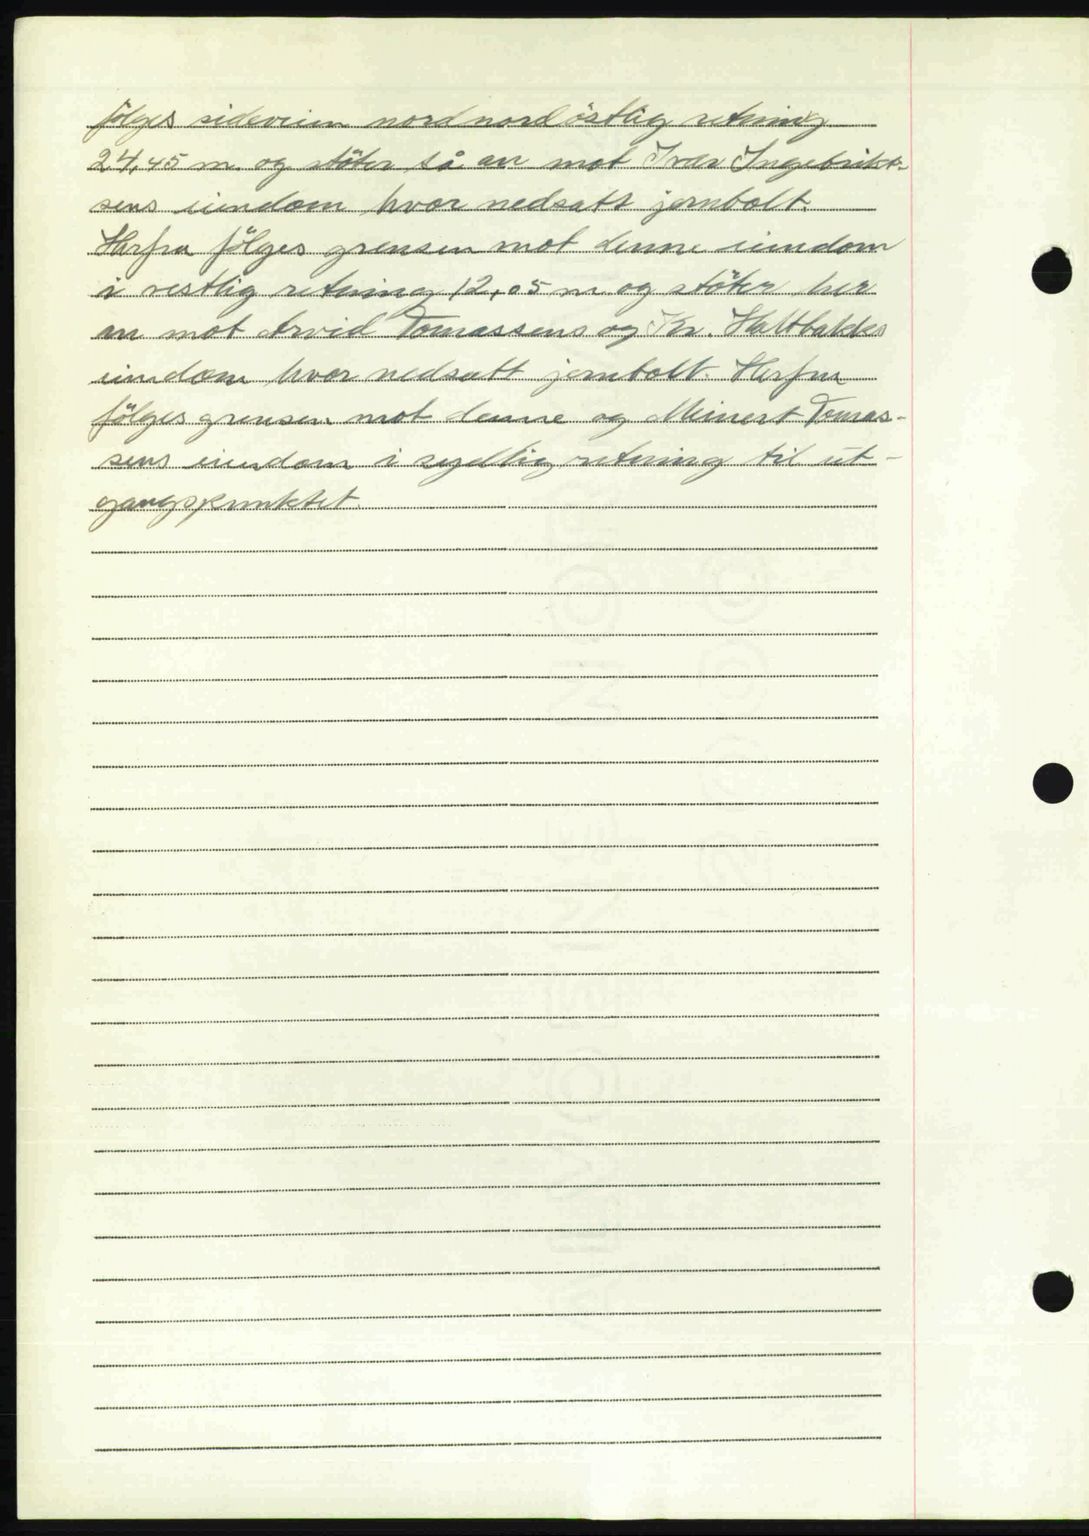 følges sideveien nordnordöstlig retning
24,45 m og stöter så an mot Ivar Ingebrikt-
sens eiendom hvor nedsatt jernbolt.
Herfra følges grensen mot denne eiendom
i vestlig retning 12,05 m og stöter her
an mot Arvid Tomassens og Kr. Holtbakks
eiendom hvor nedsatt jernbolt. Herfra
følges grensen mot denne og Meinert Tomas-
sens eiendom i sydlig retning til ut-
gangspunktet.